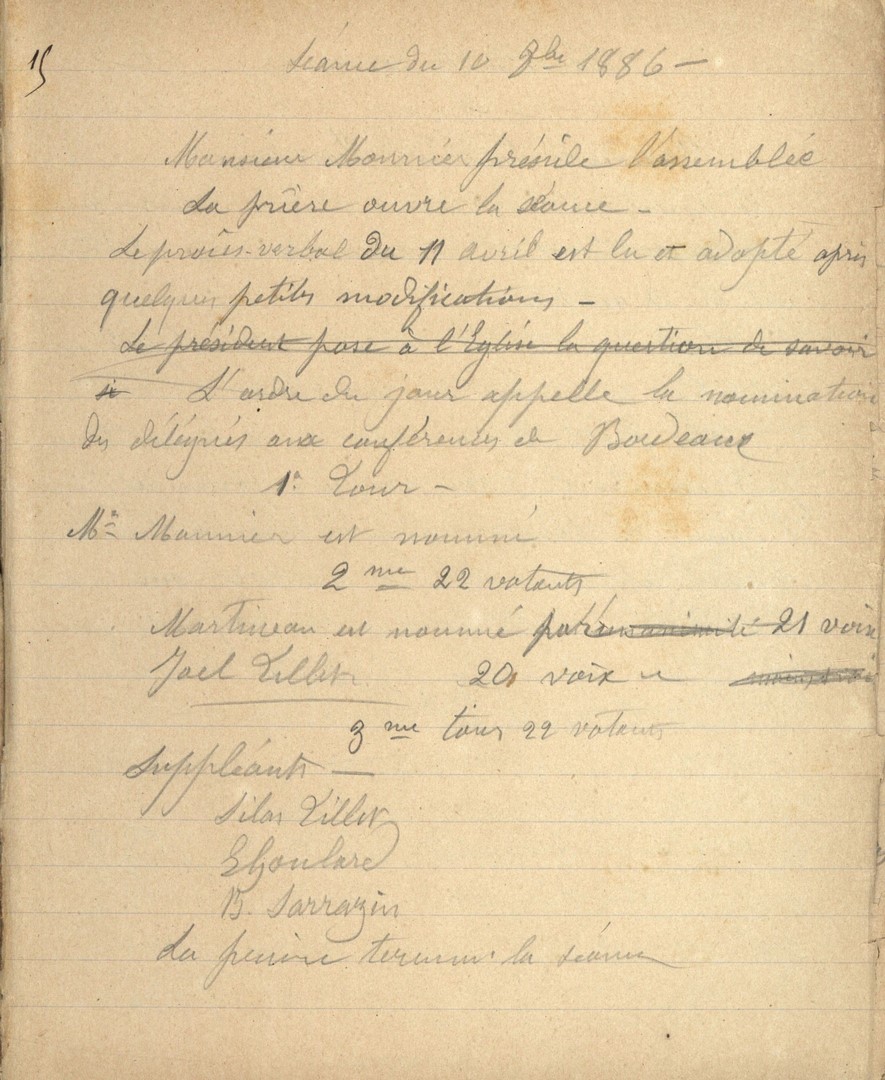 15
Séance du 10 8bre 1886 –
Monsieur Mounier préside l'assemblée
La prière ouvre la séance –
Le procès-verbal du 11 avril est lu et adopté après
quelques petites modifications –
Le président pose à l'Eglise la question de savoir
si L'ordre du jour appelle la nomination
des délégués aux conférences de Bordeaux
1er Tour –
Mr Mounier est nommé
2 me 22 votants
Martineau est nommé par l'unanimité 21 voix
Joël Tillet 20 voix
3 me tour 22 votants
Suppléants –
Silas Tillet
B. Sarrazin
La prière termine la séance